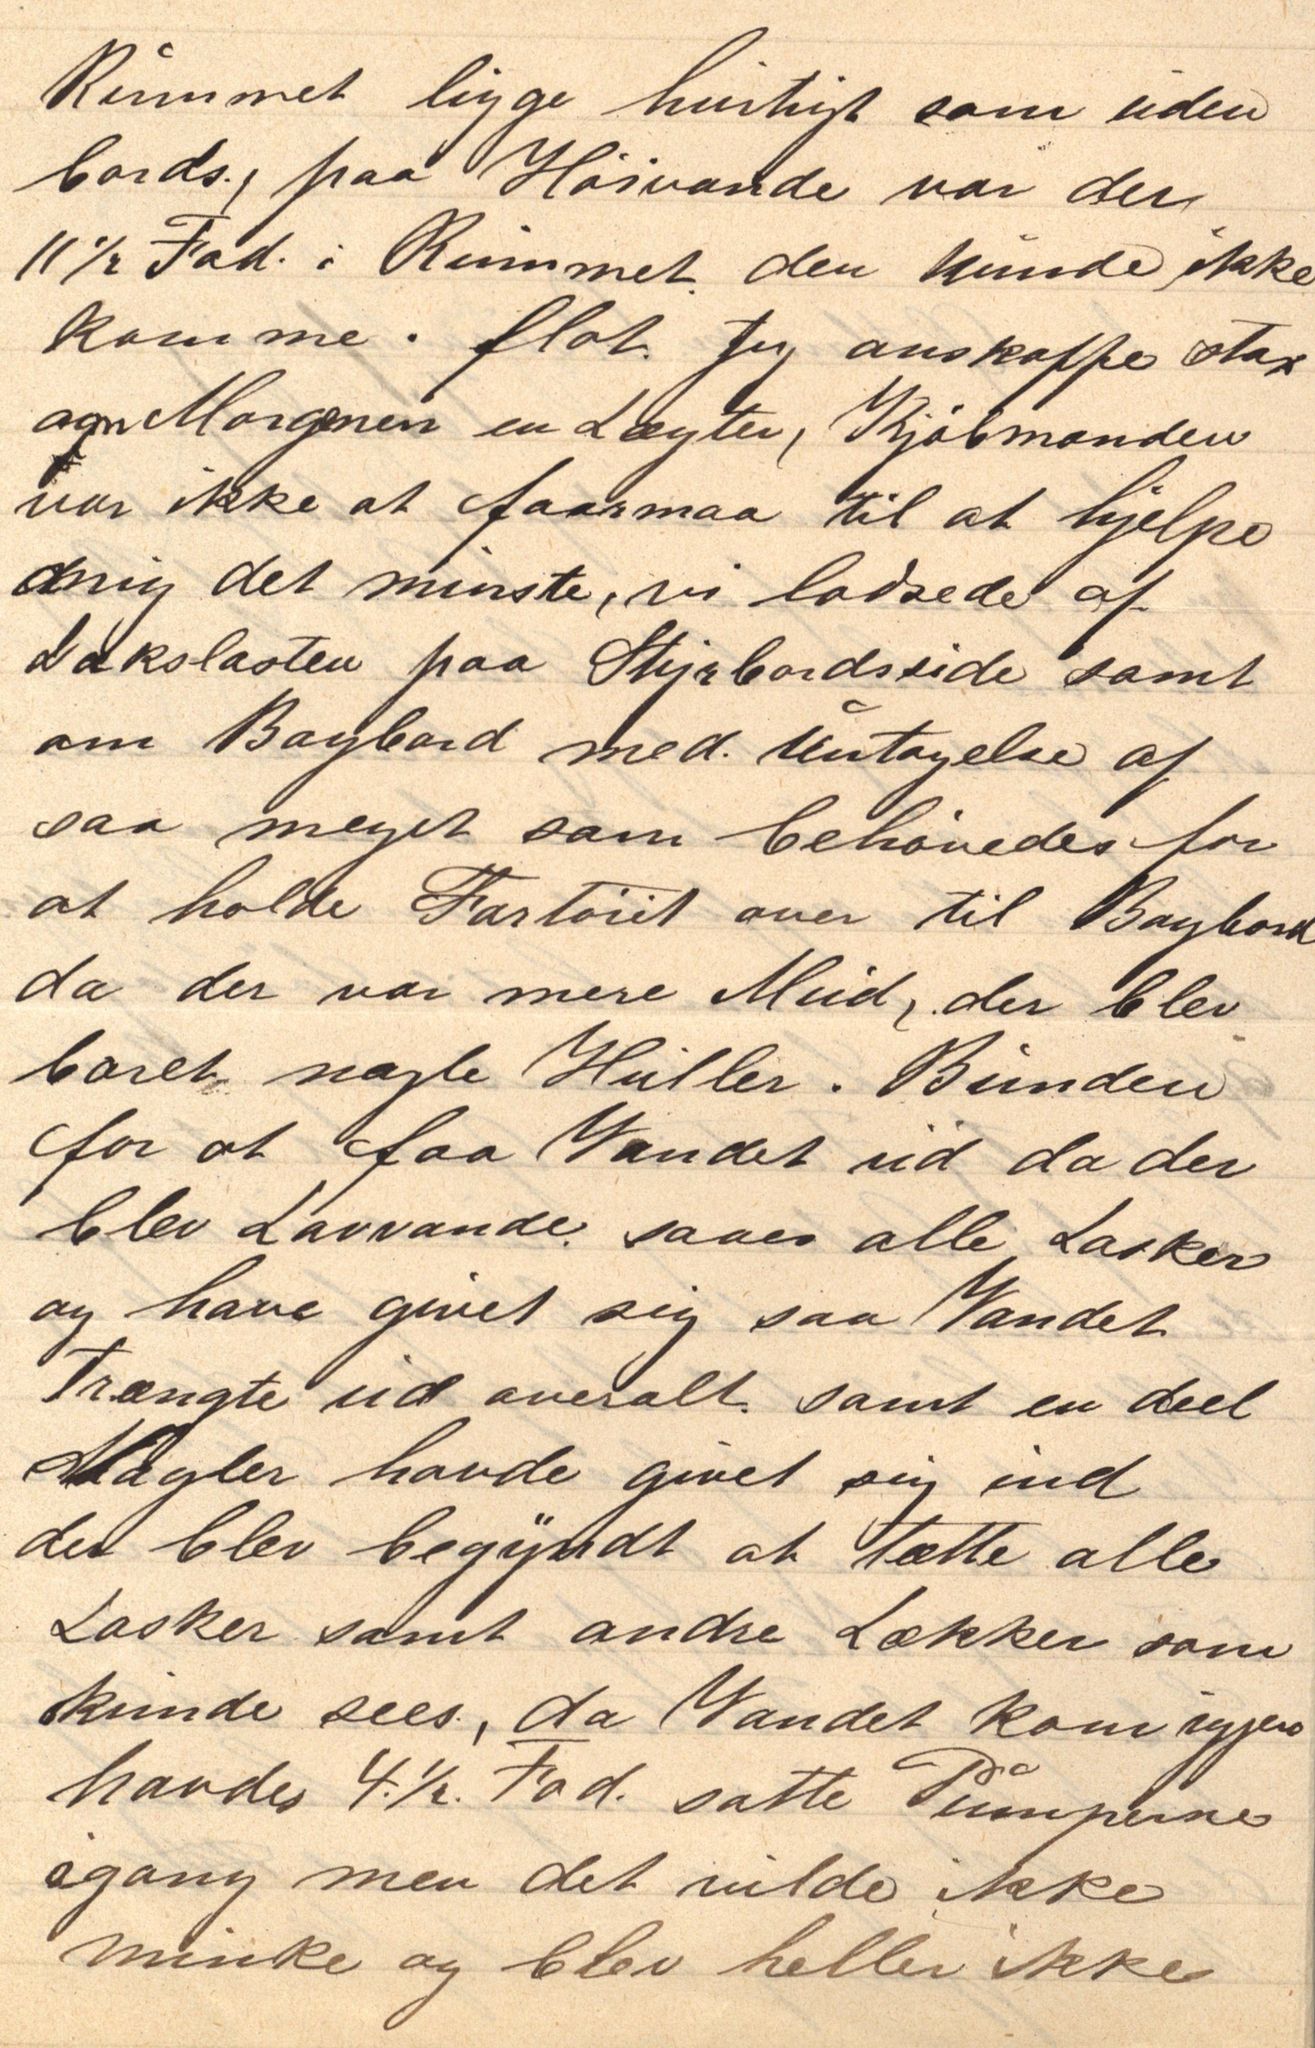 Rummet ligge hurtigt som uden
bords, paa Høivande var der
11 1/2 Fod. i Rummet. den kunde ikke
komme. flot. Jeg anskaffe strax
om Morgenen en Lægter, Kjöbmanden
var ikke at faa til at hjelpe
mig det minste, vi lodsede af
Dækslasten paa Styrbordsside samt
om Bagbord med. Untagelse af
saa meget som behövedes for
at holde Fartöiet over til Bagbord
da der var mere Mud, der blev
boret nogle Huller. Bunden
for at faa Vandet ud da der
blev Lavvande. saaes alle Lasker
og have givet sig saa Vandet
Trængte ud overalt. samt en deel
Nagler havde givet sig ind
der blev begÿndt at tætte alle
Lasker samt andre Lækker som
kunde sees., da Vandet kom iggen
havdes 4.1/2. Fod. satte Pumperne
igang men det vilde ikke
minke og blev heller ikke